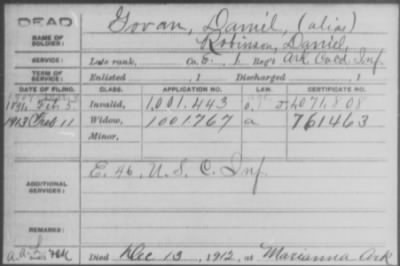 DEAD
NAME OF SOLDIER: Govan, Daniel, (alias)
Robinson, Daniel,
SERVICE: Late rank, Co. E, 1 Reg't Ark Cold Inf.
TERM OF SERVICE: Enlisted , 1 Discharged , 1
DATE OF FILING. CLASS. APPLICATION NO. LAW. CERTIFICATE NO.
1891, Feb 5. Invalid, 1,001,443 1,071,808
1913 Feb 11 Widow, 1001767 a 761463
Minor,
ADDITIONAL SERVICES: E. 46, U. S. C. Inf.
REMARKS:
Died Dec 13, 1912, at Marianna Ark